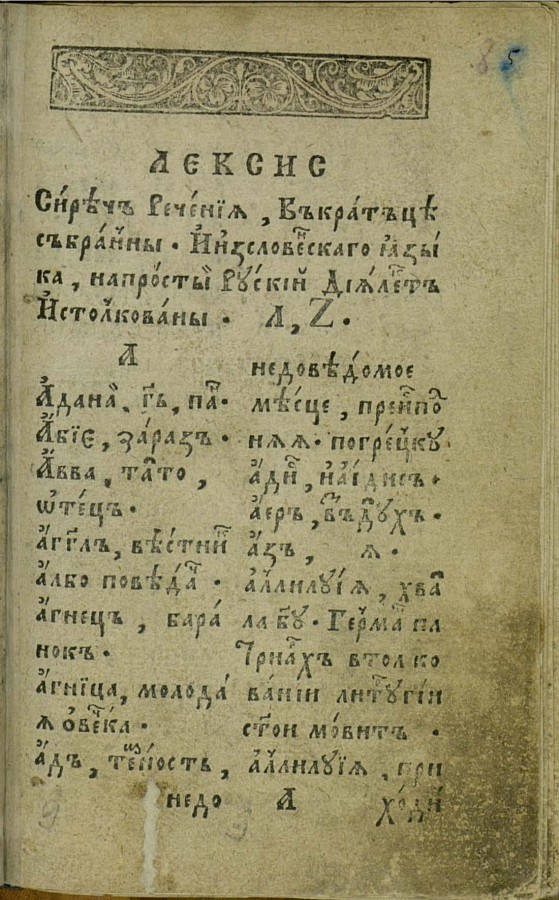 5
ЛЄКСИС
Си́рѣчъ Рече́нїѧ, Въкра́тъцѣ
събра́нны. И҆изслове́нскаго ꙗ҆зы
ка, напро́сты́й Ру́скїй Дїѧле́ктъ
И҆столко́ваны. А, Z.
А
А҆дана́й, гь, па́н.
А҆́бїє, за́разъ.
А҆́вва, та́то,
ѡ҆те́цъ.
а҆́гг҃лъ, вѣ́стник
а҆́лбо повѣ́дач.
а҆́гнецъ, бара́
нокъ.
а҆́гнїца, молода́
ѧ ове́чка.
а҆́дъ, те́мность,
недовѣ́домое
мѣ́сце, преиспо́д
нѧѧ. погре́цку
а҆́дис, и҆а́идисъ.
а҆́еръ, въ́здухъ.
а҆́зъ, ѧ.
а҆ллилꙋ́їѧ, хва
ла бг҃у. Ге́рман па
трїа́рхъ втолко
ва́нїи литꙋргі́и
ст҃ои мо́витъ.
а҆ллилꙋ́їѧ, при
недо А хо́ди